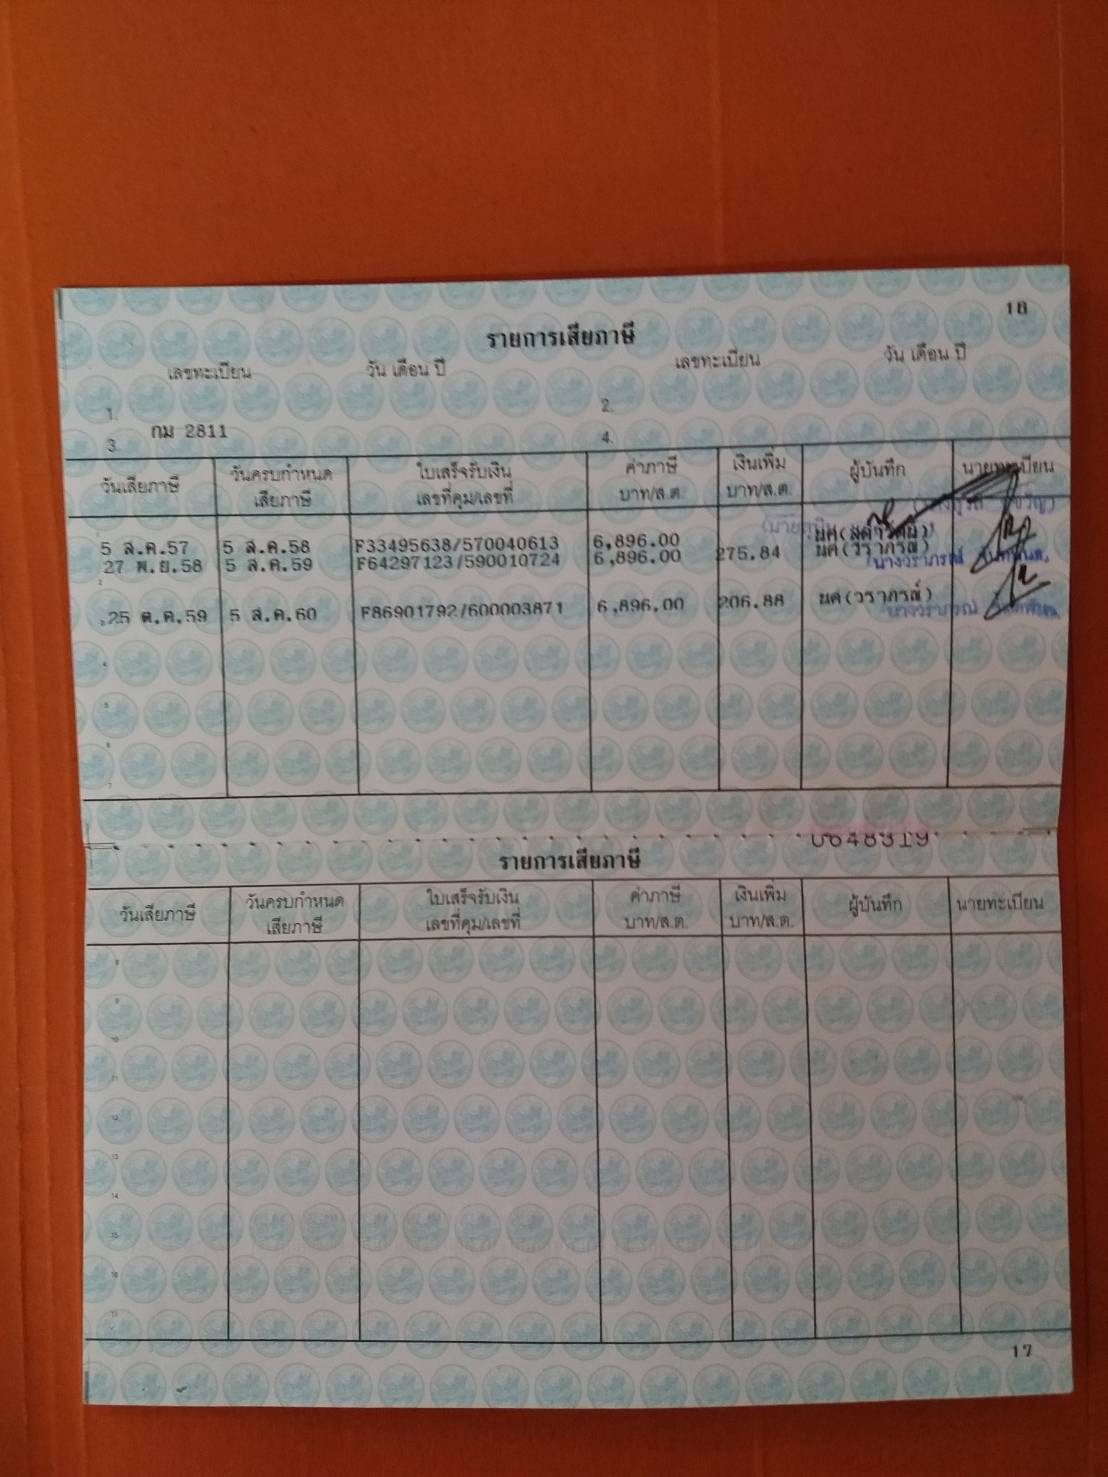 16
รายการเสียภาษี
เลขทะเบียน วัน เดือน ปี เลขทะเบียน วัน เดือน ปี
1. 2.
3. กม 2811 4.
วันเสียภาษี วันครบกำหนดเสียภาษี ใบเสร็จรับเงิน เลขที่คุม/เลขที่ ค่าภาษี บาท/ส.ต. เงินเพิ่ม บาท/ส.ต. ผู้บันทึก นายทะเบียน
5 ส.ค.57 5 ส.ค.58 F33495638/570040613 6,896.00
27 พ.ย.58 5 ส.ค.59 F64297123/590010724 6,896.00 275.84 นศ(วราภรณ์)
25 ต.ค.59 5 ส.ค.60 F86901792/600003871 6,896.00 206.88 นศ(วราภรณ์)
นางวราภรณ์
4
5
6
7
0648319
รายการเสียภาษี
วันเสียภาษี วันครบกำหนดเสียภาษี ใบเสร็จรับเงิน เลขที่คุม/เลขที่ ค่าภาษี บาท/ส.ต. เงินเพิ่ม บาท/ส.ต. ผู้บันทึก นายทะเบียน
8
9
10
11
12
13
14
15
16
17
17